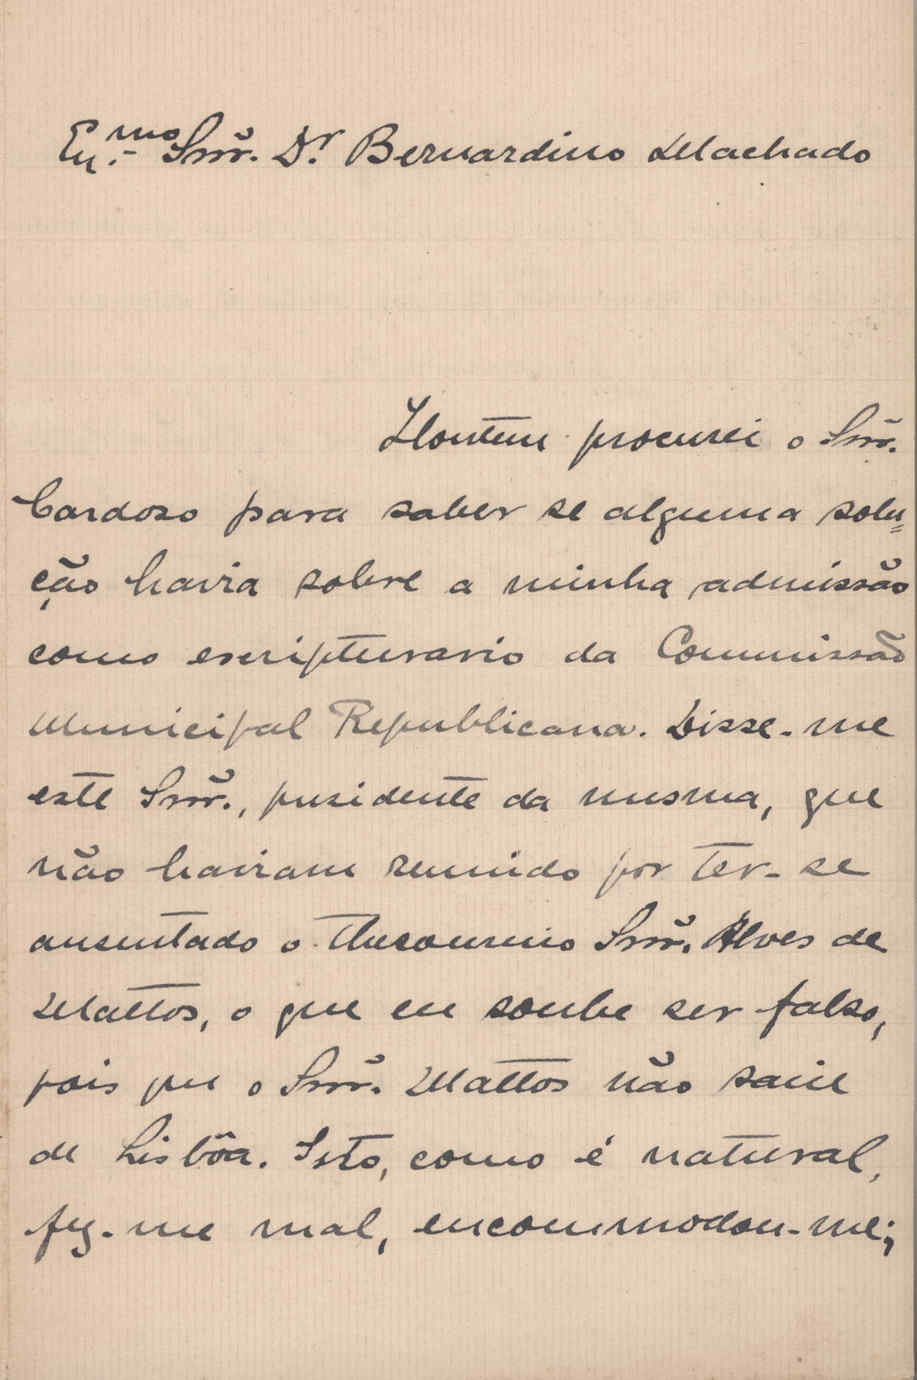 Ex.mo Snr. Dr. Bernardino Machado
Hontem procurei o Snr.
Cardoso para saber se alguma solu=
ção havia sobre a minha admissão
como escripturario da Commissão
Municipal Republicana. Disse-me
este Snr., presidente da mesma, que
não haviam reunido por ter-se
ausentado o thesoureiro Snr. Alves de
Mattos, o que eu soube ser falso,
pois que o Snr. Mattos não saiu
de Lisbôa. Isto, como é natural,
fez-me mal, encommodou-me;